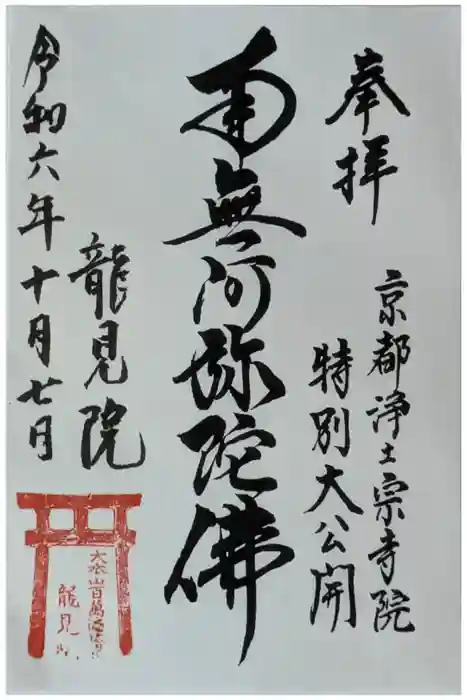 奉拝
京都浄土宗寺院
特別大公開
南無阿弥陀佛
龍見院
令和六年十月七日
龍見院